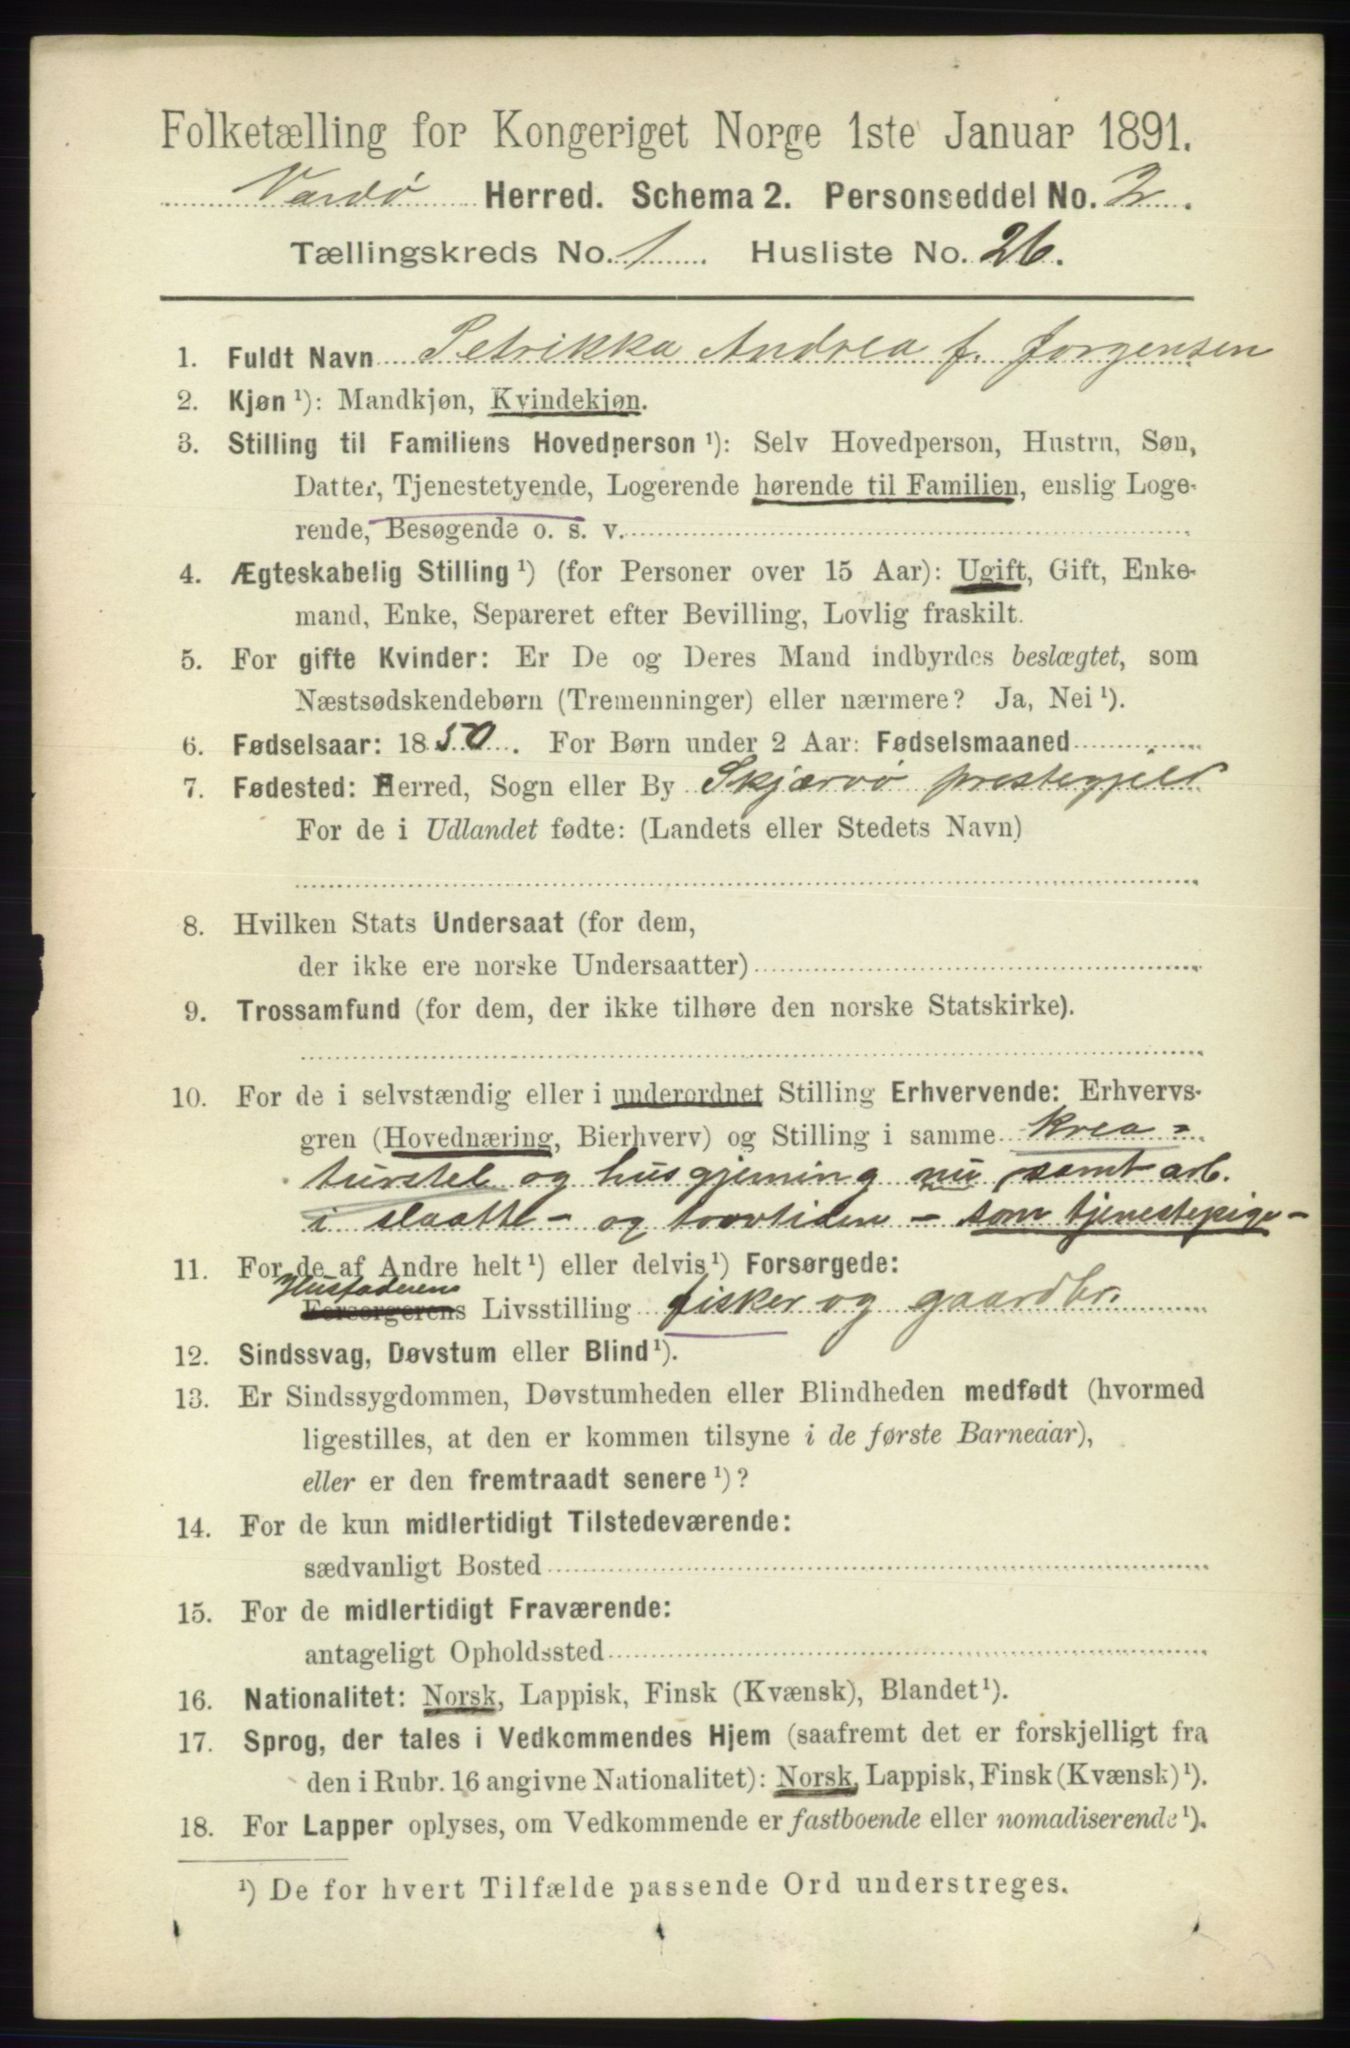 Folketælling for Kongeriget Norge 1ste Januar 1891.
Vardø Herred. Schema 2. Personseddel No. 2.
Tællingskreds No. 1 Husliste No. 26.
1. Fuldt Navn Petrikka Andrea f. Jørgensen
2. Kjøn ¹): Mandkjøn, Kvindekjøn.
3. Stilling til Familiens Hovedperson ¹): Selv Hovedperson, Hustru, Søn,
Datter, Tjenestetyende, Logerende hørende til Familien, enslig Loge-
rende, Besøgende o. s. v.
4. Ægteskabelig Stilling ¹) (for Personer over 15 Aar): Ugift, Gift, Enke-
mand, Enke, Separeret efter Bevilling, Lovlig fraskilt.
5. For gifte Kvinder: Er De og Deres Mand indbyrdes beslægtet, som
Næstsødskendebørn (Tremenninger) eller nærmere? Ja, Nei ¹).
6. Fødselsaar: 1850. For Børn under 2 Aar: Fødselsmaaned
7. Fødested: Herred, Sogn eller By Skjærvø prestegjeld
For de i Udlandet fødte: (Landets eller Stedets Navn)
8. Hvilken Stats Undersaat (for dem,
der ikke ere norske Undersaatter)
9. Trossamfund (for dem, der ikke tilhøre den norske Statskirke).
10. For de i selvstændig eller i underordnet Stilling Erhvervende: Erhvervs-
gren (Hovednæring, Bierhverv) og Stilling i samme Krea-
turstel og husgjerning nu, samt arb.
i slaatte- og torvtiden - som tjenestepige -
11. For de af Andre helt ¹) eller delvis ¹) Forsørgede:
Husfaderens
Forsørgerens Livsstilling fisker og gaardbr.
12. Sindssvag, Døvstum eller Blind ¹).
13. Er Sindssygdommen, Døvstumheden eller Blindheden medfødt (hvormed
ligestilles, at den er kommen tilsyne i de første Barneaar),
eller er den fremtraadt senere ¹)?
14. For de kun midlertidigt Tilstedeværende:
sædvanligt Bosted
15. For de midlertidigt Fraværende:
antageligt Opholdssted
16. Nationalitet: Norsk, Lappisk, Finsk (Kvænsk), Blandet ¹).
17. Sprog, der tales i Vedkommendes Hjem (saafremt det er forskjelligt fra
den i Rubr. 16 angivne Nationalitet): Norsk, Lappisk, Finsk (Kvænsk) ¹).
18. For Lapper oplyses, om Vedkommende er fastboende eller nomadiserende ¹).
¹) De for hvert Tilfælde passende Ord understreges.